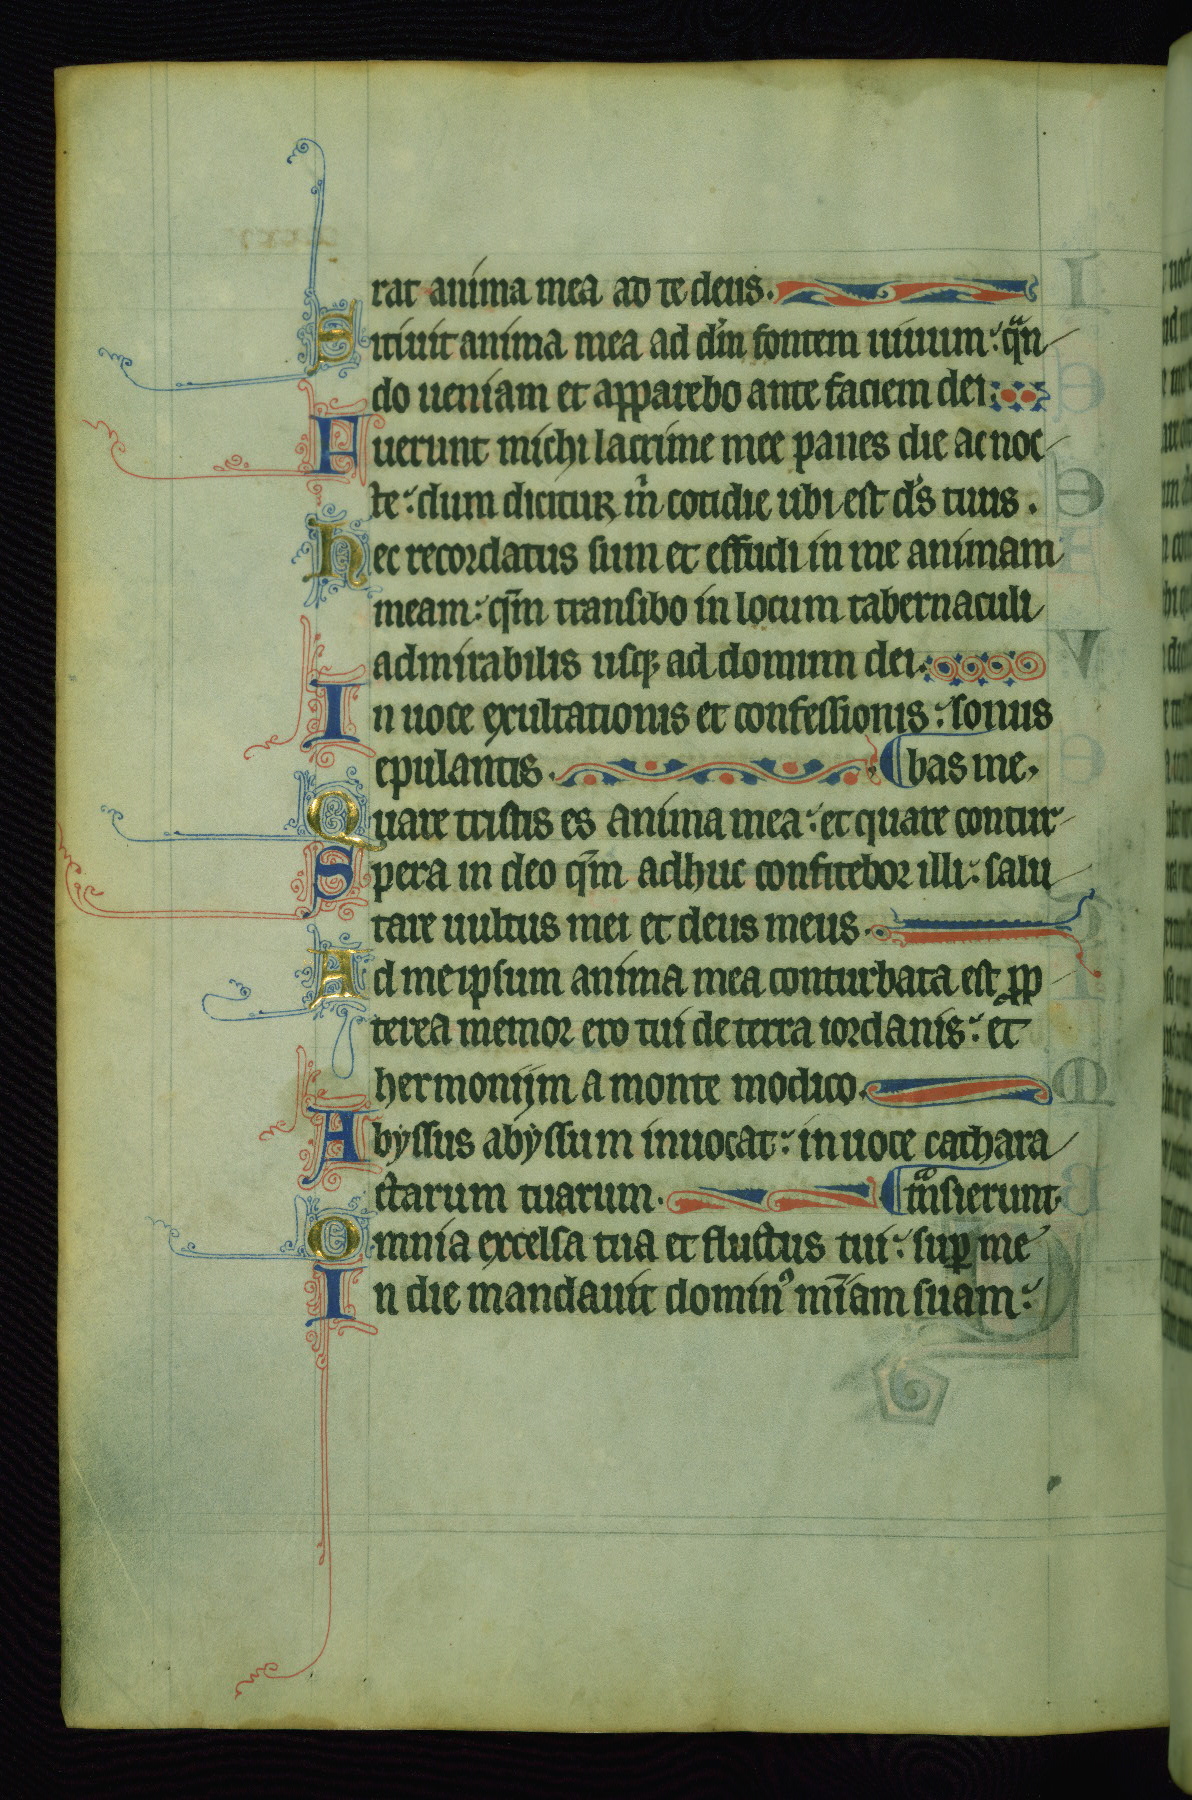 rat anima mea ad te deus.
Sitiuit anima mea ad dm̄ fontem uiuum: qᵃn
do ueniam et apparebo ante faciem dei:
Fuerunt michi lacrime mee panes die ac noc
te: dum dicitur m̄ cotidie ubi est ds̄ tuus.
Hec recordatus sum et effudi in me animam
meam: qm̄ transibo in locum tabernaculi
admirabilis usqꝫ ad domum dei.
In uoce exultationis et confessionis: sonus
epulantis. bas me,
Quare tristis es anima mea: et quare contur
Spera in deo qm̄ adhuc confitebor illi: salu
tare uultus mei et deus meus.
Ad meipsum anima mea conturbata est ꝓp
terea memor ero tui de terra iordanis: et
hermonijm a monte modico.
Abyssus abyssum inuocat: in uoce cathara
ctarum tuarum. tᵃnsierunt
Omnia excelsa tua et fluctus tui: suꝑ me
In die mandauit dominꝰ mīam suam: